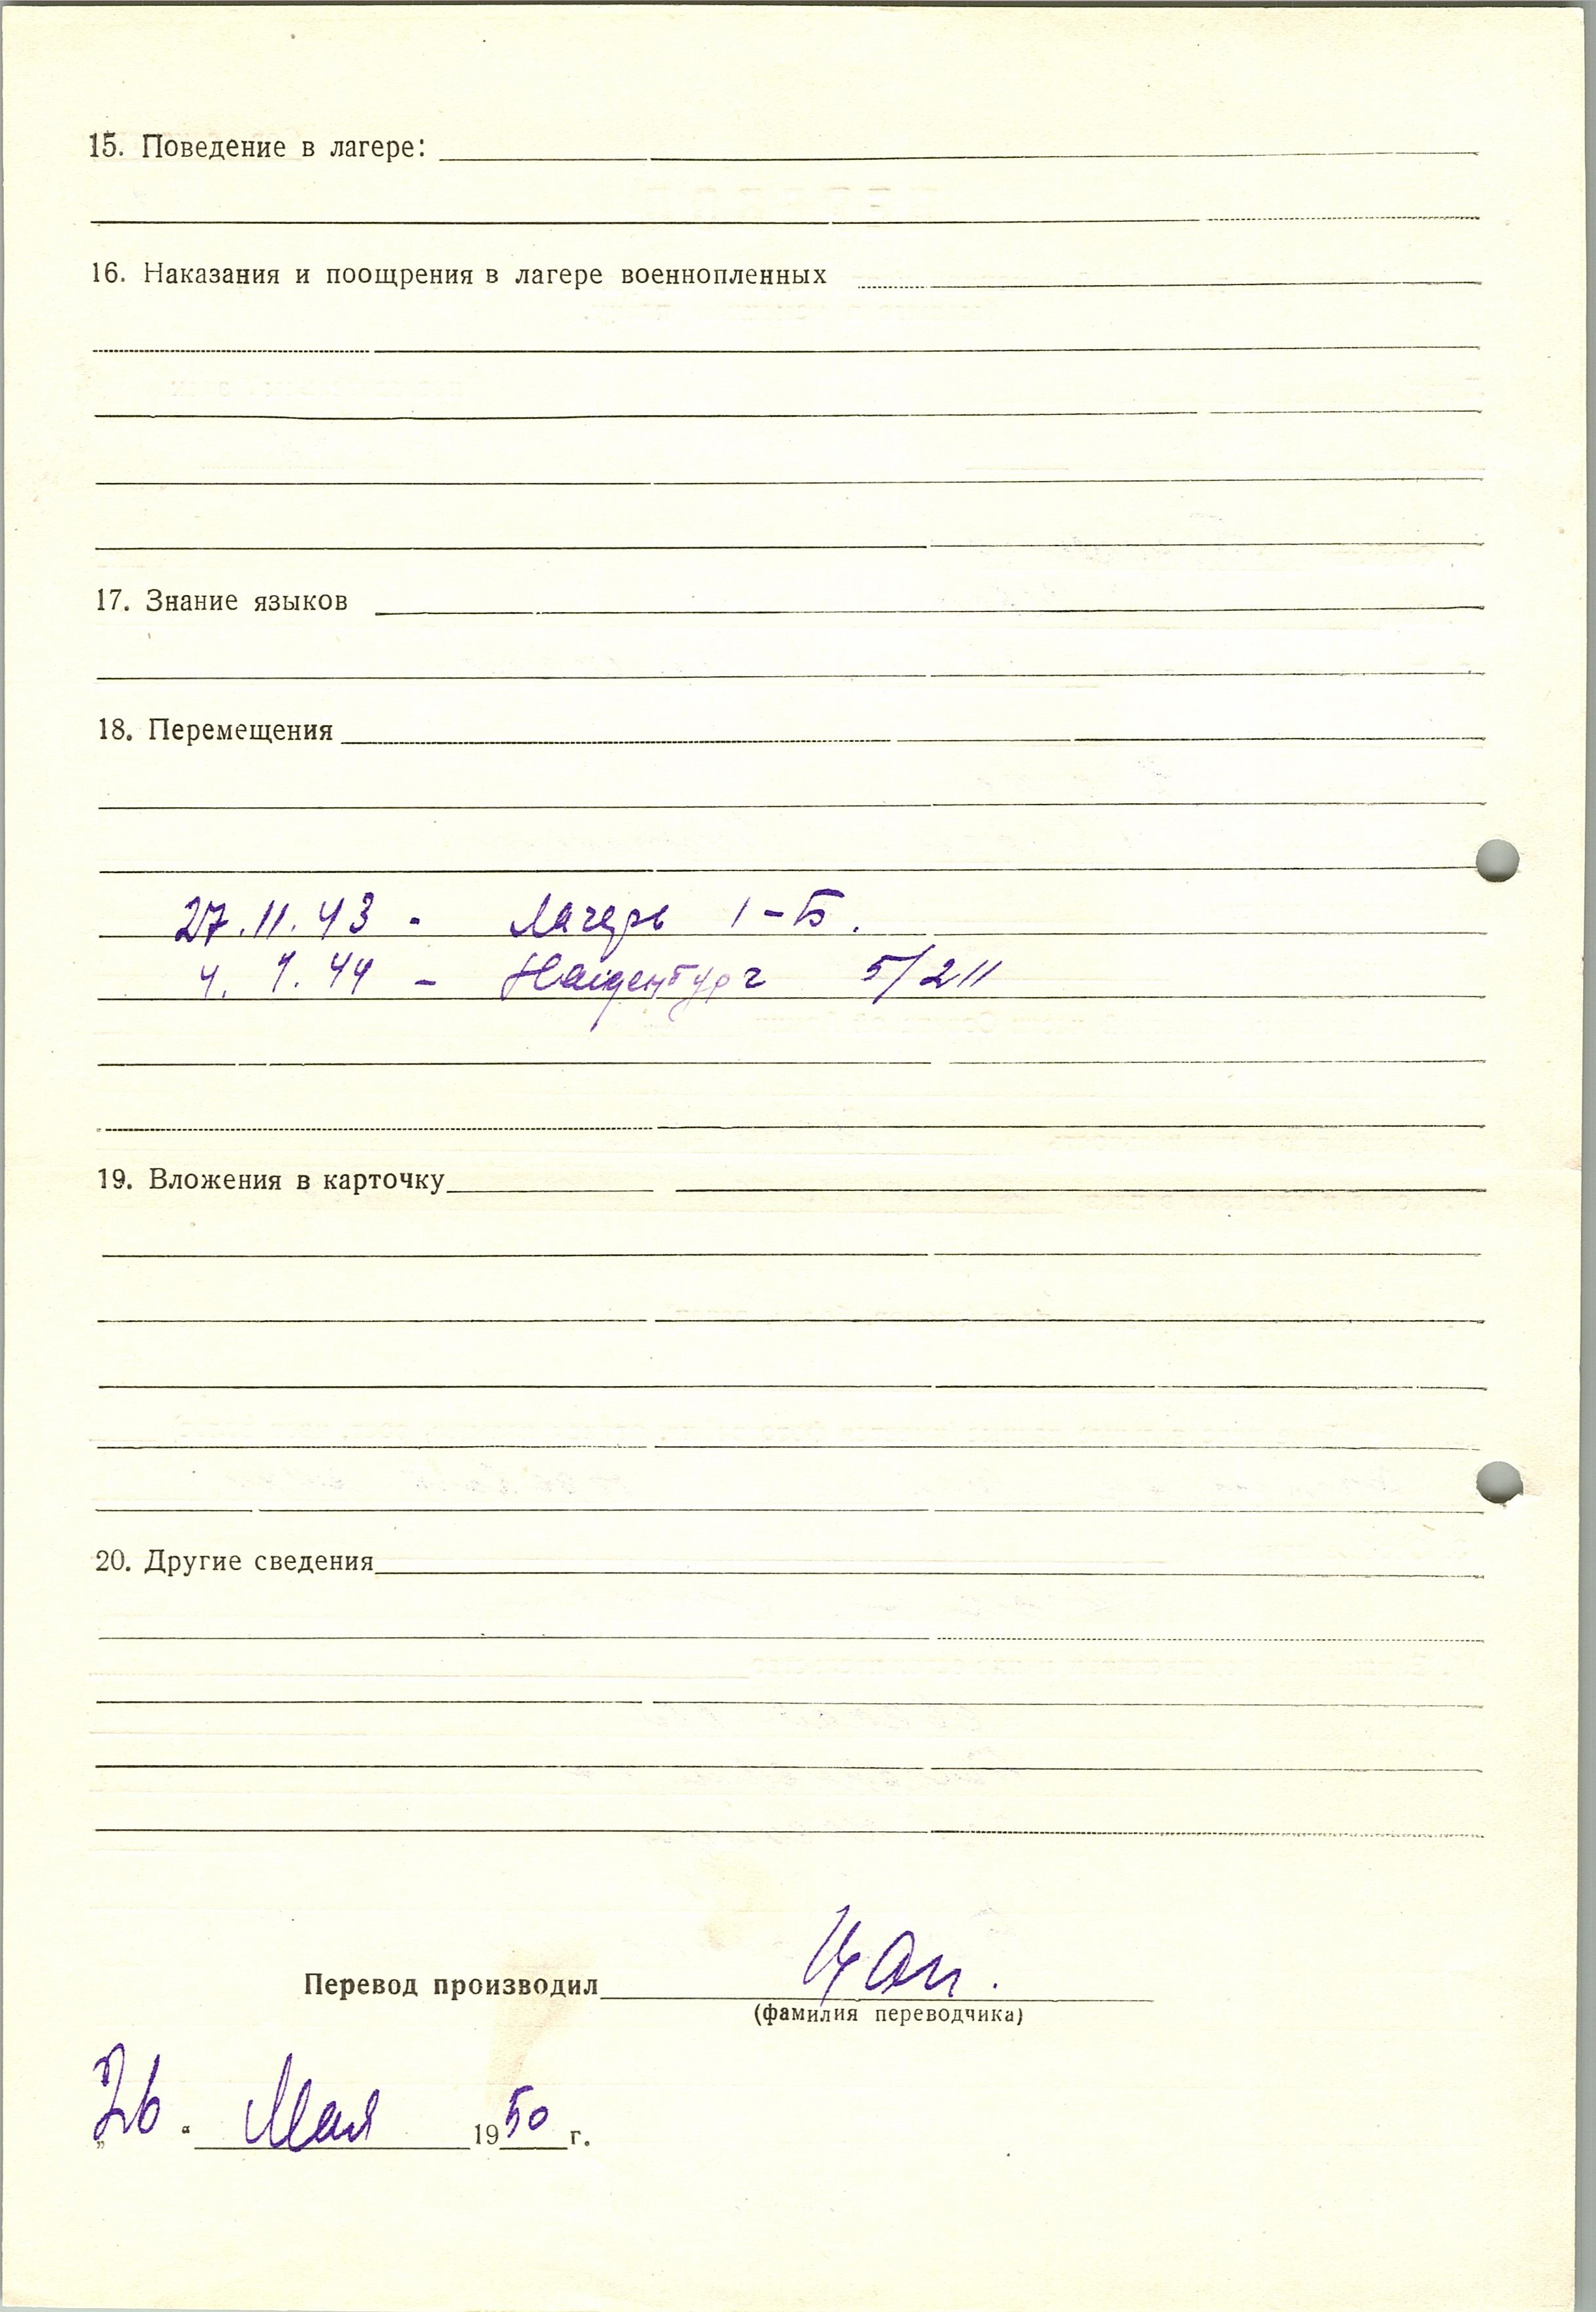 15. Поведение в лагере:
16. Наказания и поощрения в лагере военнопленных
17. Знание языков
18. Перемещения
27.11.43 - Лагерь 1-Б.
4. 1. 44 - 5/211
19. Вложения в карточку
20. Другие сведения
Перевод производил
(фамилия переводчика)
„26“ Мая 1950 г.